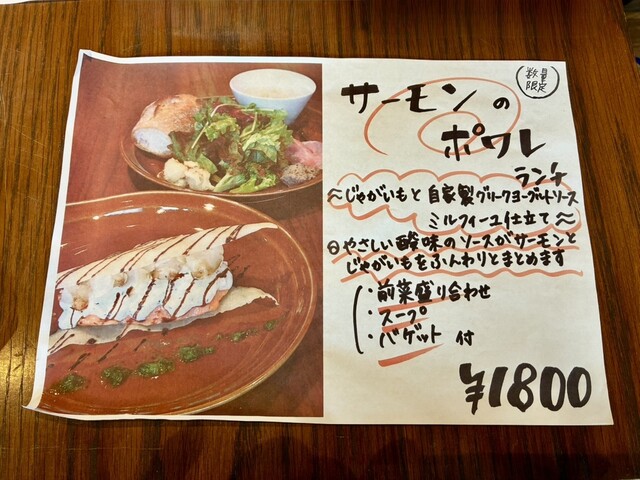 数量
限定
サーモンの
ポワレ
ランチ
～じゃがいもと自家製グリークヨーグルトソース
ミルフィーユ仕立て～
やさしい酸味のソースがサーモンと
じゃがいもをふんわりとまとめます
・前菜盛り合わせ
・スープ
・バゲット 付
¥1800